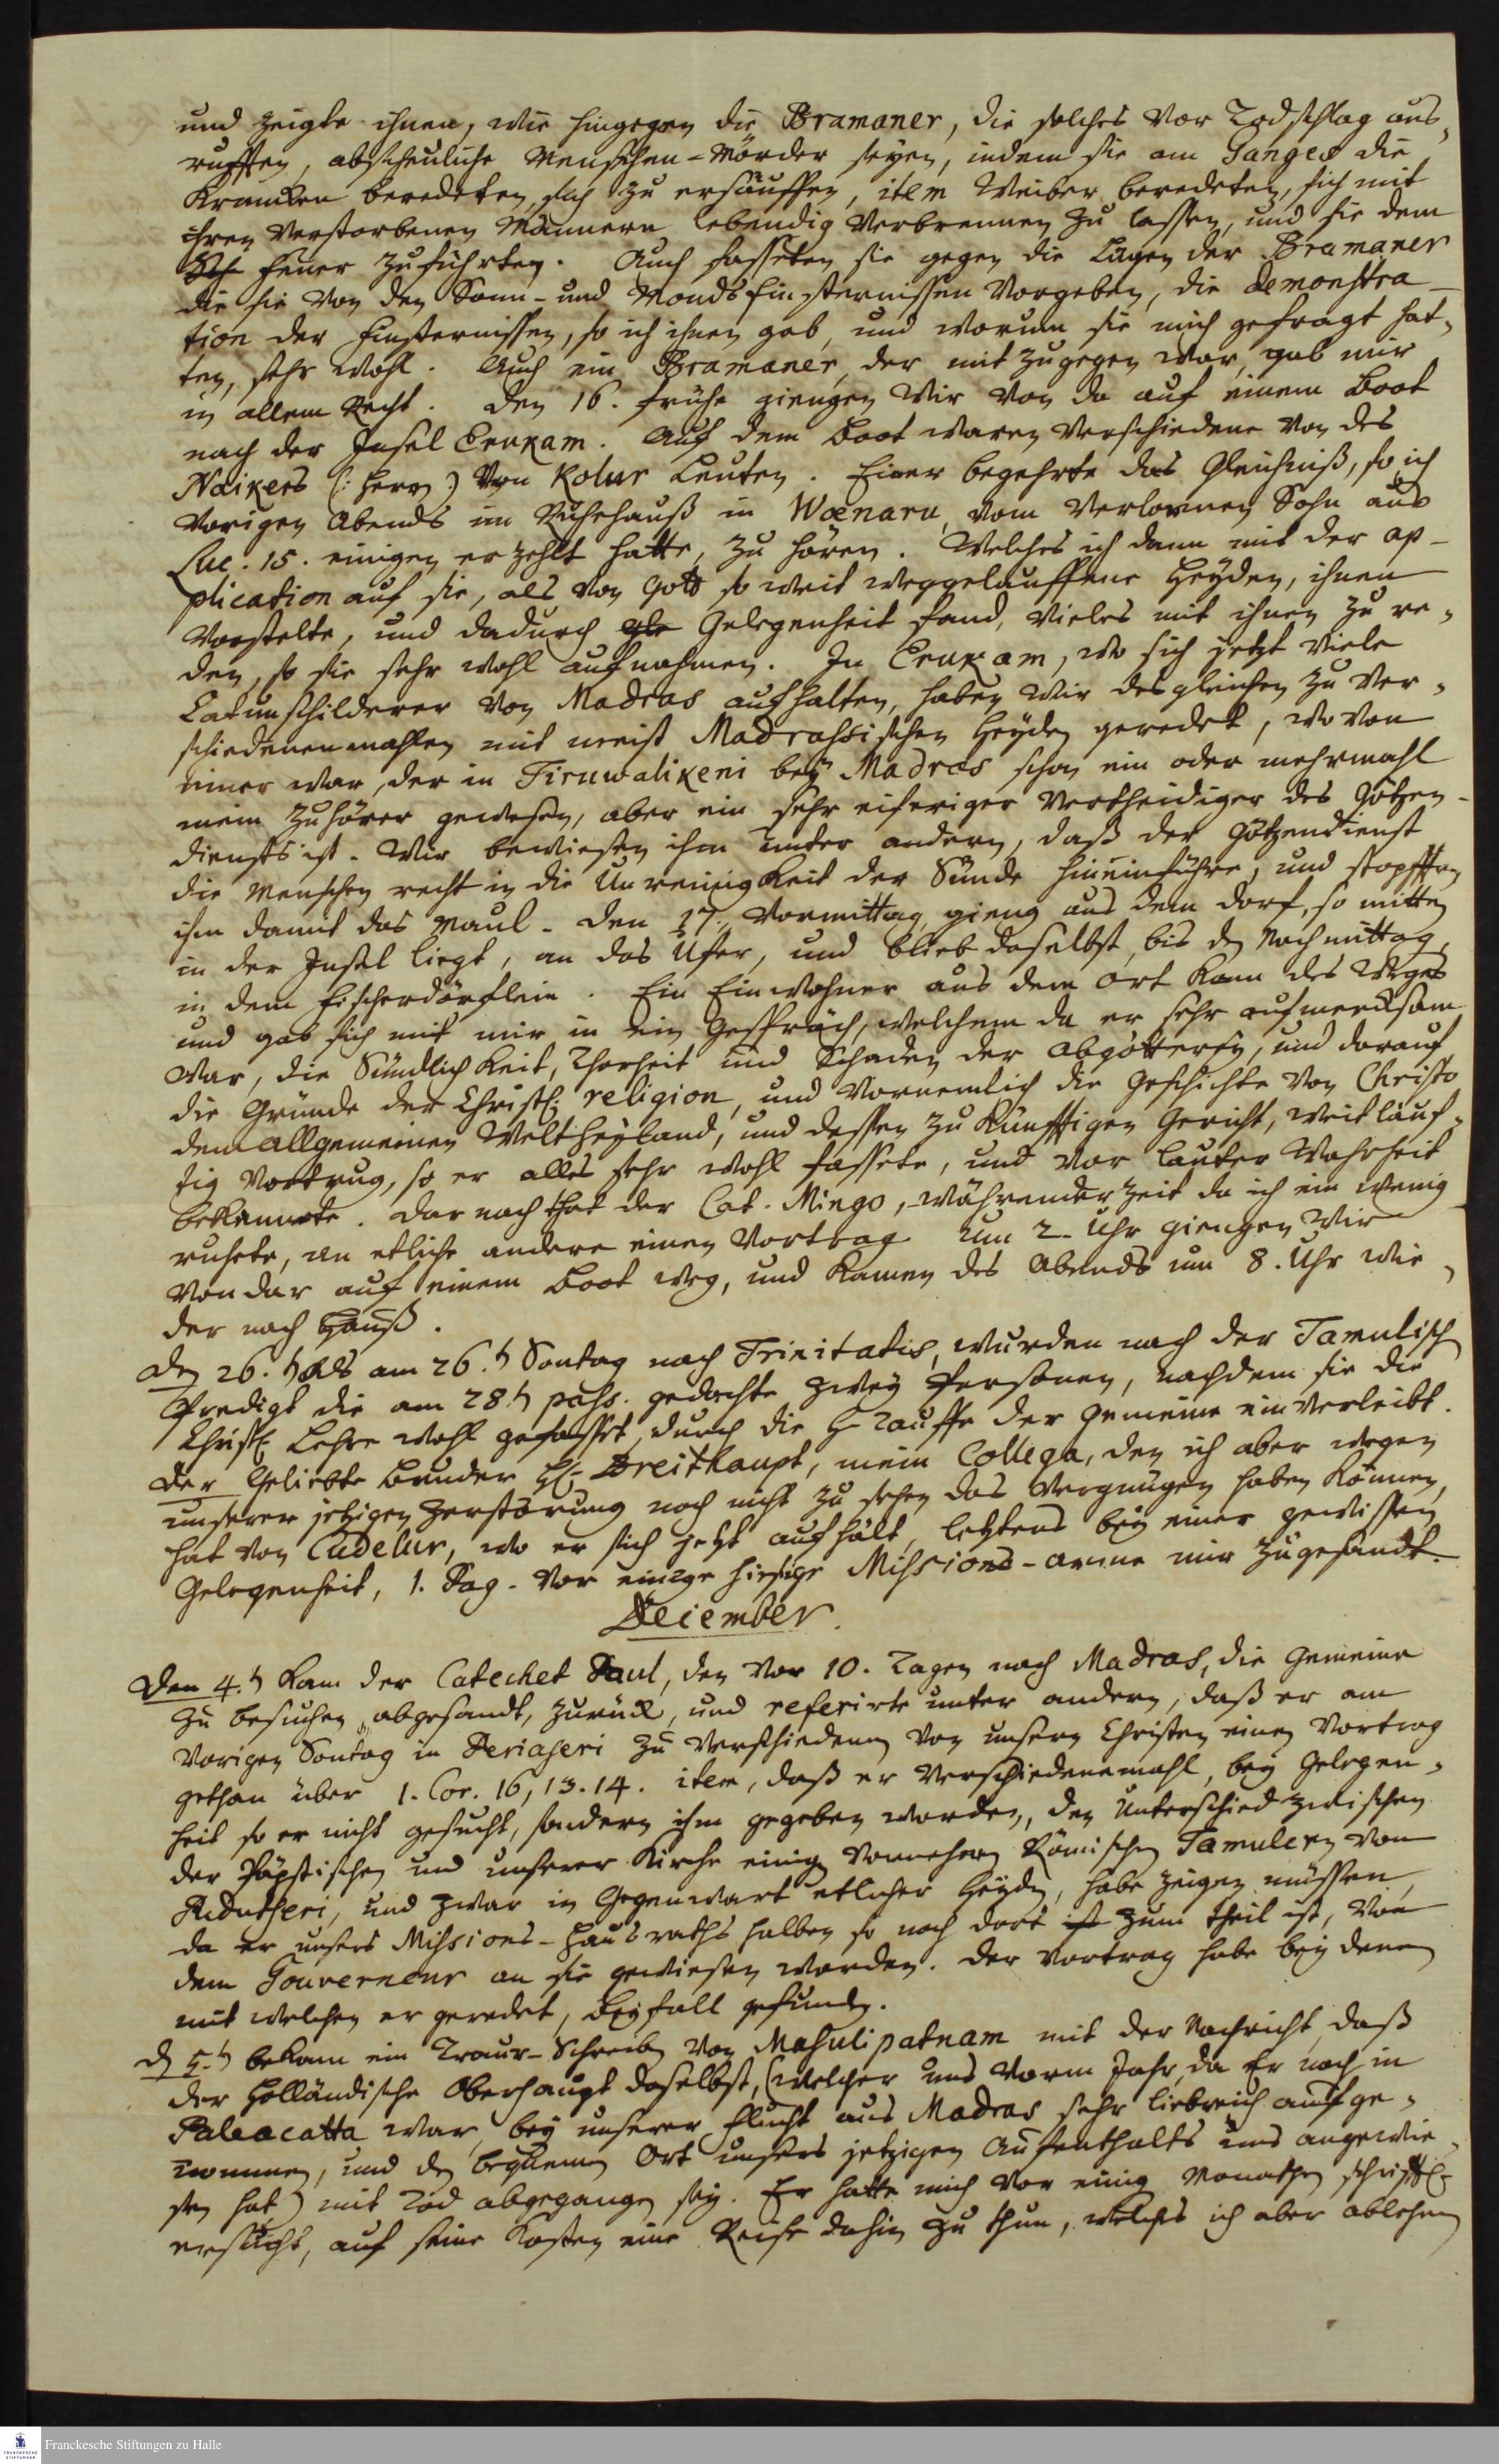 und zeigte ihnen, wie hingegen die Bramaner, die solches vor Todschlag aus-
ruffen, abscheuliche Menschen-Mörder seyen, indem sie am Ganges die
Krancken beredeten sich zu ersäuffen, item Weiber beredeten, sich mit
ihren verstorbenen Männern lebendig verbrennen zu lassen, und sie dem
Feuer zuführten. Auch fasseten sie gegen die Lügen der Bramaner
die sie von den Sonn- und Mondsfinsternissen vorgeben, die demonstra-
tion der Finsternissen, so ich ihnen gab, und worum sie mich gefragt hat-
ten, sehr wohl. Auch ein Bramaner, der mit zugegen war, gab mir
in allem Recht. Den 16. frühe giengen wir von da auf einem Boot
nach der Insel Erukam. Auf dem Boot waren verschiedene von des
Naikers (: Herrn) von Kolur Leuten. Einer begehrte das Gleichniß, so ich
vorigen Abends im Ruhehauß in Wœnaru vom verlornen Sohn aus
Luc. 15. einigen erzehlt hatte, zu hören. Welches ich dann mit der ap-
plication auf sie, als von Gott so weit weggelauffene Heyden, ihnen
vorstelte, und dadurch Gelegenheit fand, vieles mit ihnen zu re-
den, so sie sehr wohl aufnahmen. In Erukam, wo sich jetzt viele
Catunschilderer von Madras aufhalten, haben wir desgleichen zu ver-
schiedenenmahlen mit meist Madrassischen Heyden geredet, wovon
einer war, der in Tiruwalikeni bey Madras schon ein oder mehrmahl
mein Zuhörer gewesen, aber ein sehr eiferiger Vertheidiger des Götzen-
diensts ist. Wir bewiesen ihm unter andern, daß der Götzendienst
die Menschen recht in die Unreinigkeit der Sünde hineinführe, und stopfften
ihm damit das Maul. Den 17. Vormittag gieng aus dem Dorf, so mitten
in der Insel liegt, an das Ufer, und blieb daselbst bis den Nachmittag,
in dem Fischerdörflein. Ein Einwohner aus dem Ort kam des Weges
und gab sich mit mir in ein Gespräch, welchem da er sehr aufmercksam
war, die Sündlichkeit, Thorheit und Schaden der Abgötterey, und darauf
die Gründe der Christl. religion, und vornemlich die Geschichte von Christo
dem allgemeinen Weltheyland, und dessen zukünfftigen Gericht, weitläuf-
tig vortrug, so er alles sehr wohl fassete, und vor lauter Wahrheit
bekennete. Darnach that der Cat. Mingo, währender Zeit da ich ein wenig
ruhete, an etliche andere einen Vortrag. Um 2. Uhr giengen wir
von dar auf einem Boot weg, und kamen des Abends um 8. Uhr wie-
der nach Hauß.
Den 26.ten als am 26.ten Sontag nach Trinitatis, wurden nach der Tamulisch
Predigt die am 28ten pass. gedachte zwey Personen, nachdem sie die
Christl. Lehre wohl gefasset, durch die H. Tauffe der Gemeine einverleibt.
Der Geliebte Bruder H. Breithaupt, mein Collega, den ich aber wegen
unserer jetzigen Zerstörung noch nicht zu sehen das Vergnügen haben können,
hat von Cudelur, wo er sich jetzt aufhält, letztens bey einer gewissen
Gelegenheit, 1. Pag. vor einige hiesige Missions-arme mir zugesandt.
December.
Den 4.ten kam der Catechet Paul, den vor 10. Tagen nach Madras, die Gemeine
zu besuchen, abgesandt, zurück, und referirte unter andern, daß er am
vorigen Sontag in Periaseri zu verschiedenen von unsern Christen einen Vortrag
gethan über 1. Cor. 16, 13. 14. item, daß er verschiedenemahl, bey Gelegen-
heit so er nicht gesucht, sondern ihm gegeben worden, den Unterschied zwischen
der Päpstischen und unserer Kirche einigen vornehmen Römischen Tamulern von
Pudutscheri, und zwar in Gegenwart etlicher Heyden, habe zeigen müssen,
da er unsers Missions-Haußraths halben so noch dort zum theil ist, von
dem Gouverneur an sie gewiesen worden. Der Vortrag habe bey denen
mit welchen er geredet, Beyfall gefunden.
D 5.ten bekam ein Traur-Schreiben von Masulipatnam mit der Nachricht daß
der Holländische Oberhaupt daselbst, (welcher uns vorm Jahr, da Er noch in
Paleacatta war, bey unserer Flucht aus Madras sehr liebreich aufge-
nommen, und den bequemen Ort unsers jetzigen Aufenthalts uns angewie-
sen hat) mit Tod abgegangen sey. Er hatte mich vor einig Monathen schrifftl.
ersucht, auf seine Kosten eine Reise dahin zu thun, welches ich aber ablehnen
Franckesche Stiftungen zu Halle